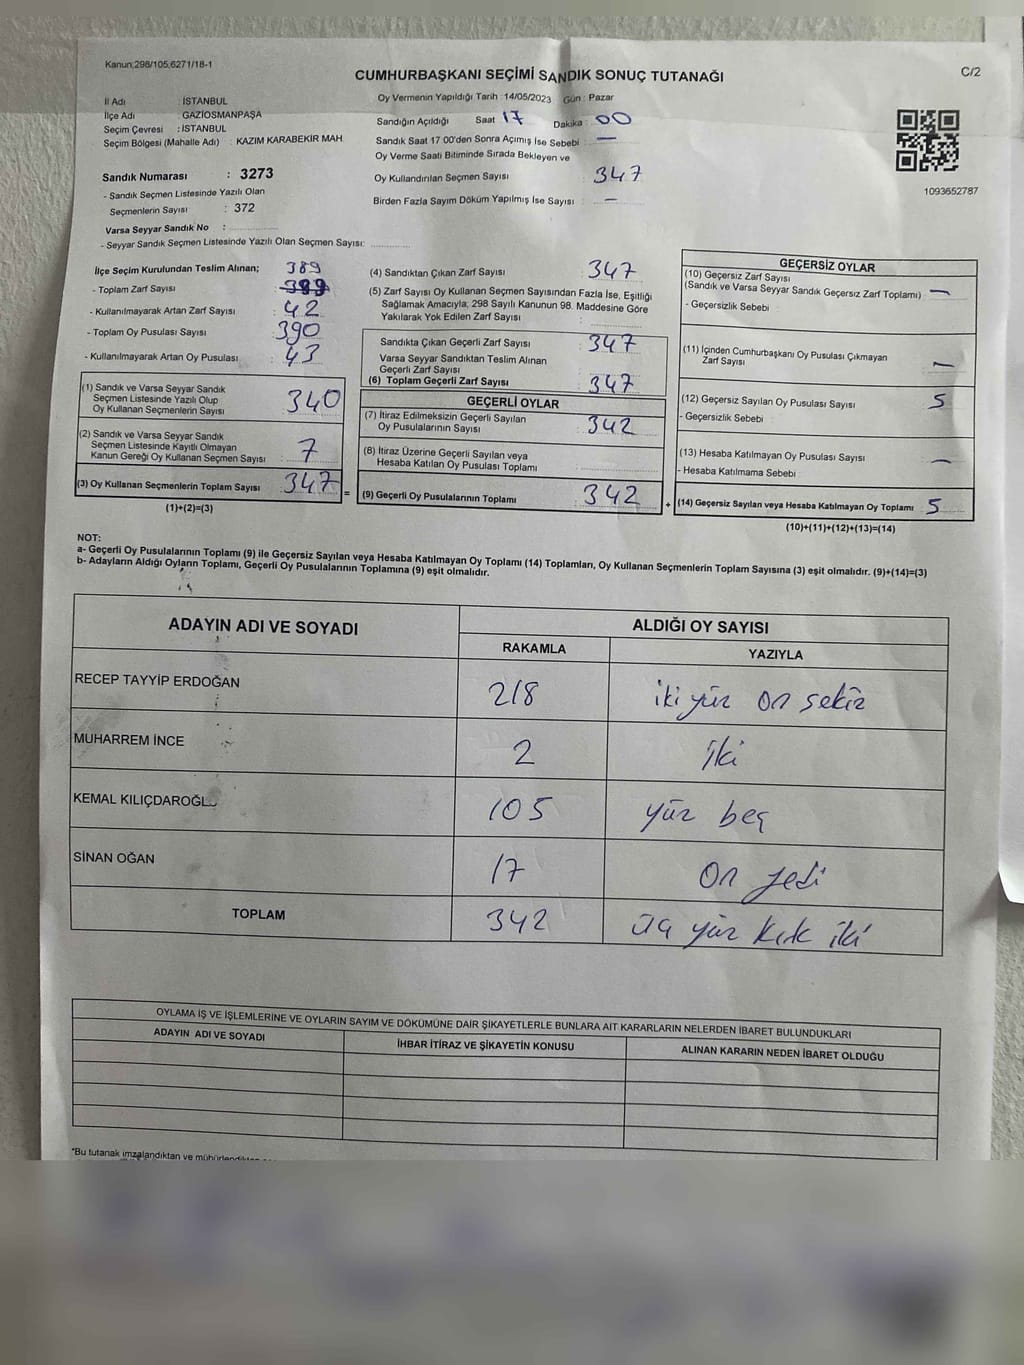 Kanun;298/105,6271/18-1
C/2
CUMHURBAŞKANI SEÇİMİ SANDIK SONUÇ TUTANAĞI
İl Adı : İSTANBUL
İlçe Adı GAZİOSMANPAŞA
Seçim Çevresi : İSTANBUL
Seçim Bölgesi (Mahalle Adı) : KAZIM KARABEKİR MAH
Sandık Numarası : 3273
- Sandık Seçmen Listesinde Yazılı Olan
Seçmenlerin Sayısı : 372
Varsa Seyyar Sandık No :
- Seyyar Sandık Seçmen Listesinde Yazılı Olan Seçmen Sayısı:
Oy Vermenin Yapıldığı Tarih : 14/05/2023 Gün : Pazar
Sandığın Açıldığı Saat 17 Dakika : 00
Sandık Saat 17 00'den Sonra Açımış İse Sebebi : —
Oy Verme Saati Bitiminde Sırada Bekleyen ve
Oy Kullandırılan Seçmen Sayısı : 347
Birden Fazla Sayım Döküm Yapılmış İse Sayısı : —
1093652787
İlçe Seçim Kurulundan Teslim Alınan; 389
- Toplam Zarf Sayısı : 389
- Kullanılmayarak Artan Zarf Sayısı : 42
- Toplam Oy Pusulası Sayısı : 390
- Kullanılmayarak Artan Oy Pusulası : 43
(1) Sandık ve Varsa Seyyar Sandık
Seçmen Listesinde Yazılı Olup
Oy Kullanan Seçmenlerin Sayısı : 340
(2) Sandık ve Varsa Seyyar Sandık
Seçmen Listesinde Kayıtlı Olmayan
Kanun Gereği Oy Kullanan Seçmen Sayısı : 7
(3) Oy Kullanan Seçmenlerin Toplam Sayısı 347 =
(1)+(2)=(3)
(4) Sandıktan Çıkan Zarf Sayısı : 347
(5) Zarf Sayısı Oy Kullanan Seçmen Sayısından Fazla İse, Eşitliği
Sağlamak Amacıyla, 298 Sayılı Kanunun 98. Maddesine Göre
Yakılarak Yok Edilen Zarf Sayısı :
Sandıkta Çıkan Geçerli Zarf Sayısı : 347
Varsa Seyyar Sandıktan Teslim Alınan
Geçerli Zarf Sayısı :
(6) Toplam Geçerli Zarf Sayısı : 347
GEÇERLİ OYLAR
(7) İtiraz Edilmeksizin Geçerli Sayılan
Oy Pusulalarının Sayısı : 342
(8) İtiraz Üzerine Geçerli Sayılan veya
Hesaba Katılan Oy Pusulası Toplamı :
(9) Geçerli Oy Pusulalarının Toplamı : 342 +
GEÇERSİZ OYLAR
(10) Geçersiz Zarf Sayısı
(Sandık ve Varsa Seyyar Sandık Geçersiz Zarf Toplamı) : —
- Geçersizlik Sebebi :
(11) İçinden Cumhurbaşkanı Oy Pusulası Çıkmayan
Zarf Sayısı : —
(12) Geçersiz Sayılan Oy Pusulası Sayısı : 5
- Geçersizlik Sebebi :
(13) Hesaba Katılmayan Oy Pusulası Sayısı : —
- Hesaba Katılmama Sebebi :
(14) Geçersiz Sayılan veya Hesaba Katılmayan Oy Toplamı : 5
(10)+(11)+(12)+(13)=(14)
NOT:
a- Geçerli Oy Pusulalarının Toplamı (9) ile Geçersiz Sayılan veya Hesaba Katılmayan Oy Toplamı (14) Toplamları, Oy Kullanan Seçmenlerin Toplam Sayısına (3) eşit olmalıdır. (9)+(14)=(3)
b- Adayların Aldığı Oyların Toplamı, Geçerli Oy Pusulalarının Toplamına (9) eşit olmalıdır.
ADAYIN ADI VE SOYADI ALDIĞI OY SAYISI
RAKAMLA YAZIYLA
RECEP TAYYİP ERDOĞAN 218 iki yüz on sekiz
MUHARREM İNCE 2 İki
KEMAL KILIÇDAROĞL 105 yüz beş
SİNAN OĞAN 17 On yedi
TOPLAM 342 üç yüz kırk iki
OYLAMA İŞ VE İŞLEMLERİNE VE OYLARIN SAYIM VE DÖKÜMÜNE DAİR ŞİKAYETLERLE BUNLARA AİT KARARLARIN NELERDEN İBARET BULUNDUKLARI
ADAYIN ADI VE SOYADI İHBAR İTİRAZ VE ŞİKAYETİN KONUSU ALINAN KARARIN NEDEN İBARET OLDUĞU
*Bu tutanak imzalandıktan ve mühürlendikten